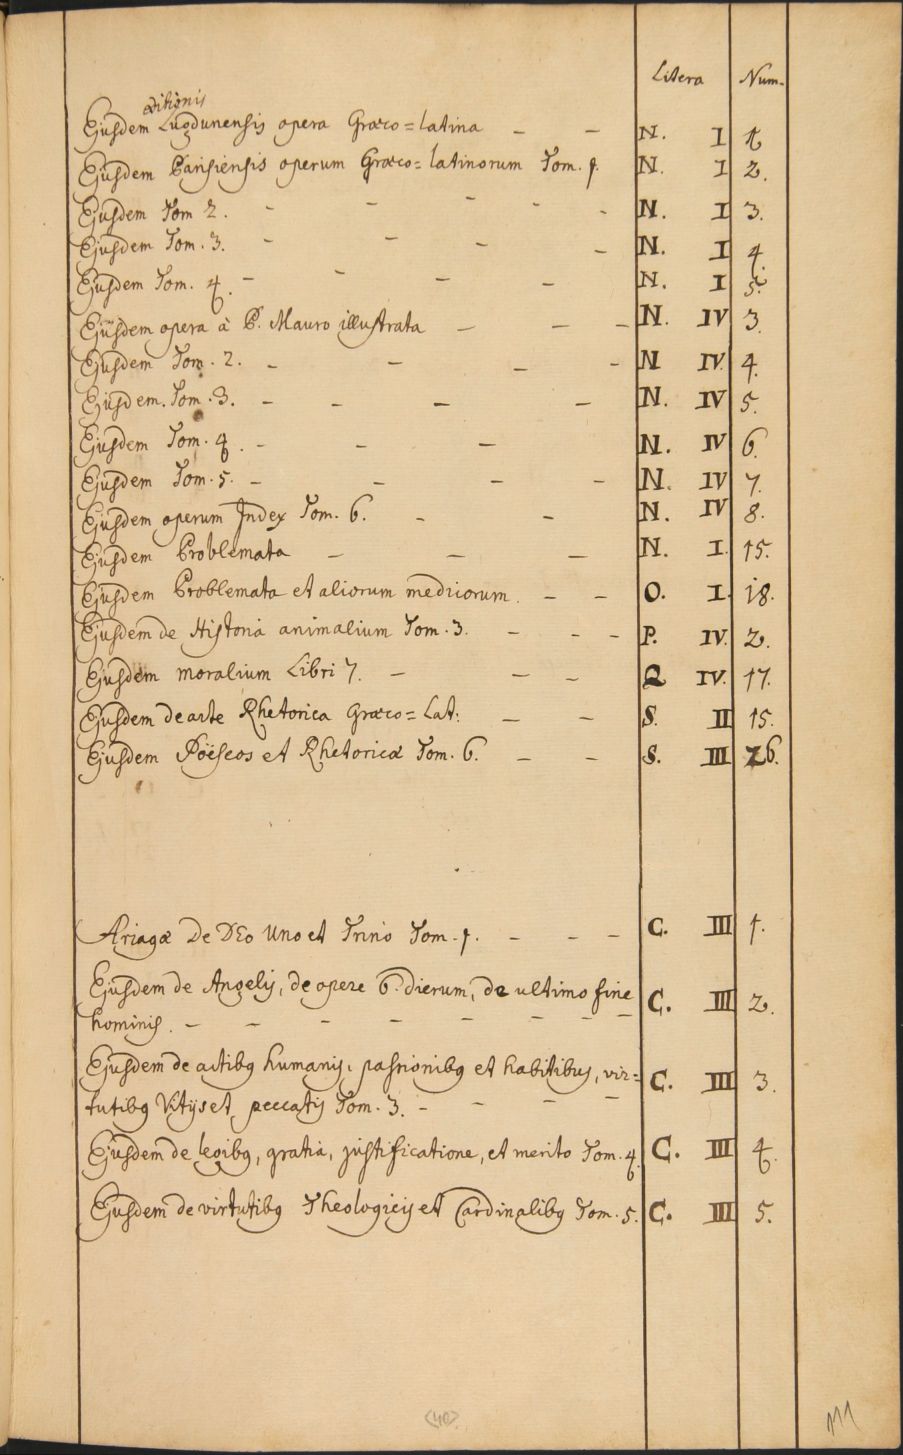 Litera Num.
editionis
Ejusdem Lugdunensis opera Græco=latina – – N. I 1.
Ejusdem Parisiensis operum Græco=latinorum Tom. 1. N. I 2.
Ejusdem Tom 2. - - - - - N. I 3.
Ejusdem Tom. 3. - - - - N. I 4.
Ejusdem Tom. 4. - - - - N. I 5.
Ejusdem opera à P. Mauro illustrata – – – N. IV 3.
Ejusdem Tom. 2. - - - - N IV. 4.
Ejusdem. Tom. 3. - - - - N. IV 5.
Ejusdem Tom. 4. - - - N. IV 6.
Ejusdem Tom. 5. - - - - N. IV 7.
Ejusdem operum Index Tom. 6. - - N. IV 8.
Ejusdem Problemata – – – N. I. 15.
Ejusdem Problemata et aliorum medicorum. – – O. I. 18.
Ejusdem de Historia animalium Tom. 3. – - - P. IV. 2.
Ejusdem moralium Libri 7. – – – Q IV. 17.
Ejusdem de arte Rhetorica Græco=Lat: – – S. II 15.
Ejusdem Poëseos et Rhetoricæ Tom. 6. – – S. III 26.
Ariagæ De DEo Uno et Trino Tom. 1. – – – C. III 1.
Ejusdem de Angelis, de opere 6. dierum, de ultimo fine
hominis. – – – – – – – – C. III 2.
Ejusdem de actibq humanis, passionibq et habitibus, vir=
tutibq Vitijs et peccatis Tom. 3. - - - – C. III 3.
Ejusdem de legibq, gratia, justificatione, et merito Tom. 4. C. III 4.
Ejusdem de virtutibq Theologicis et Cardinalibq Tom. 5. C. III 5.
(40)
111